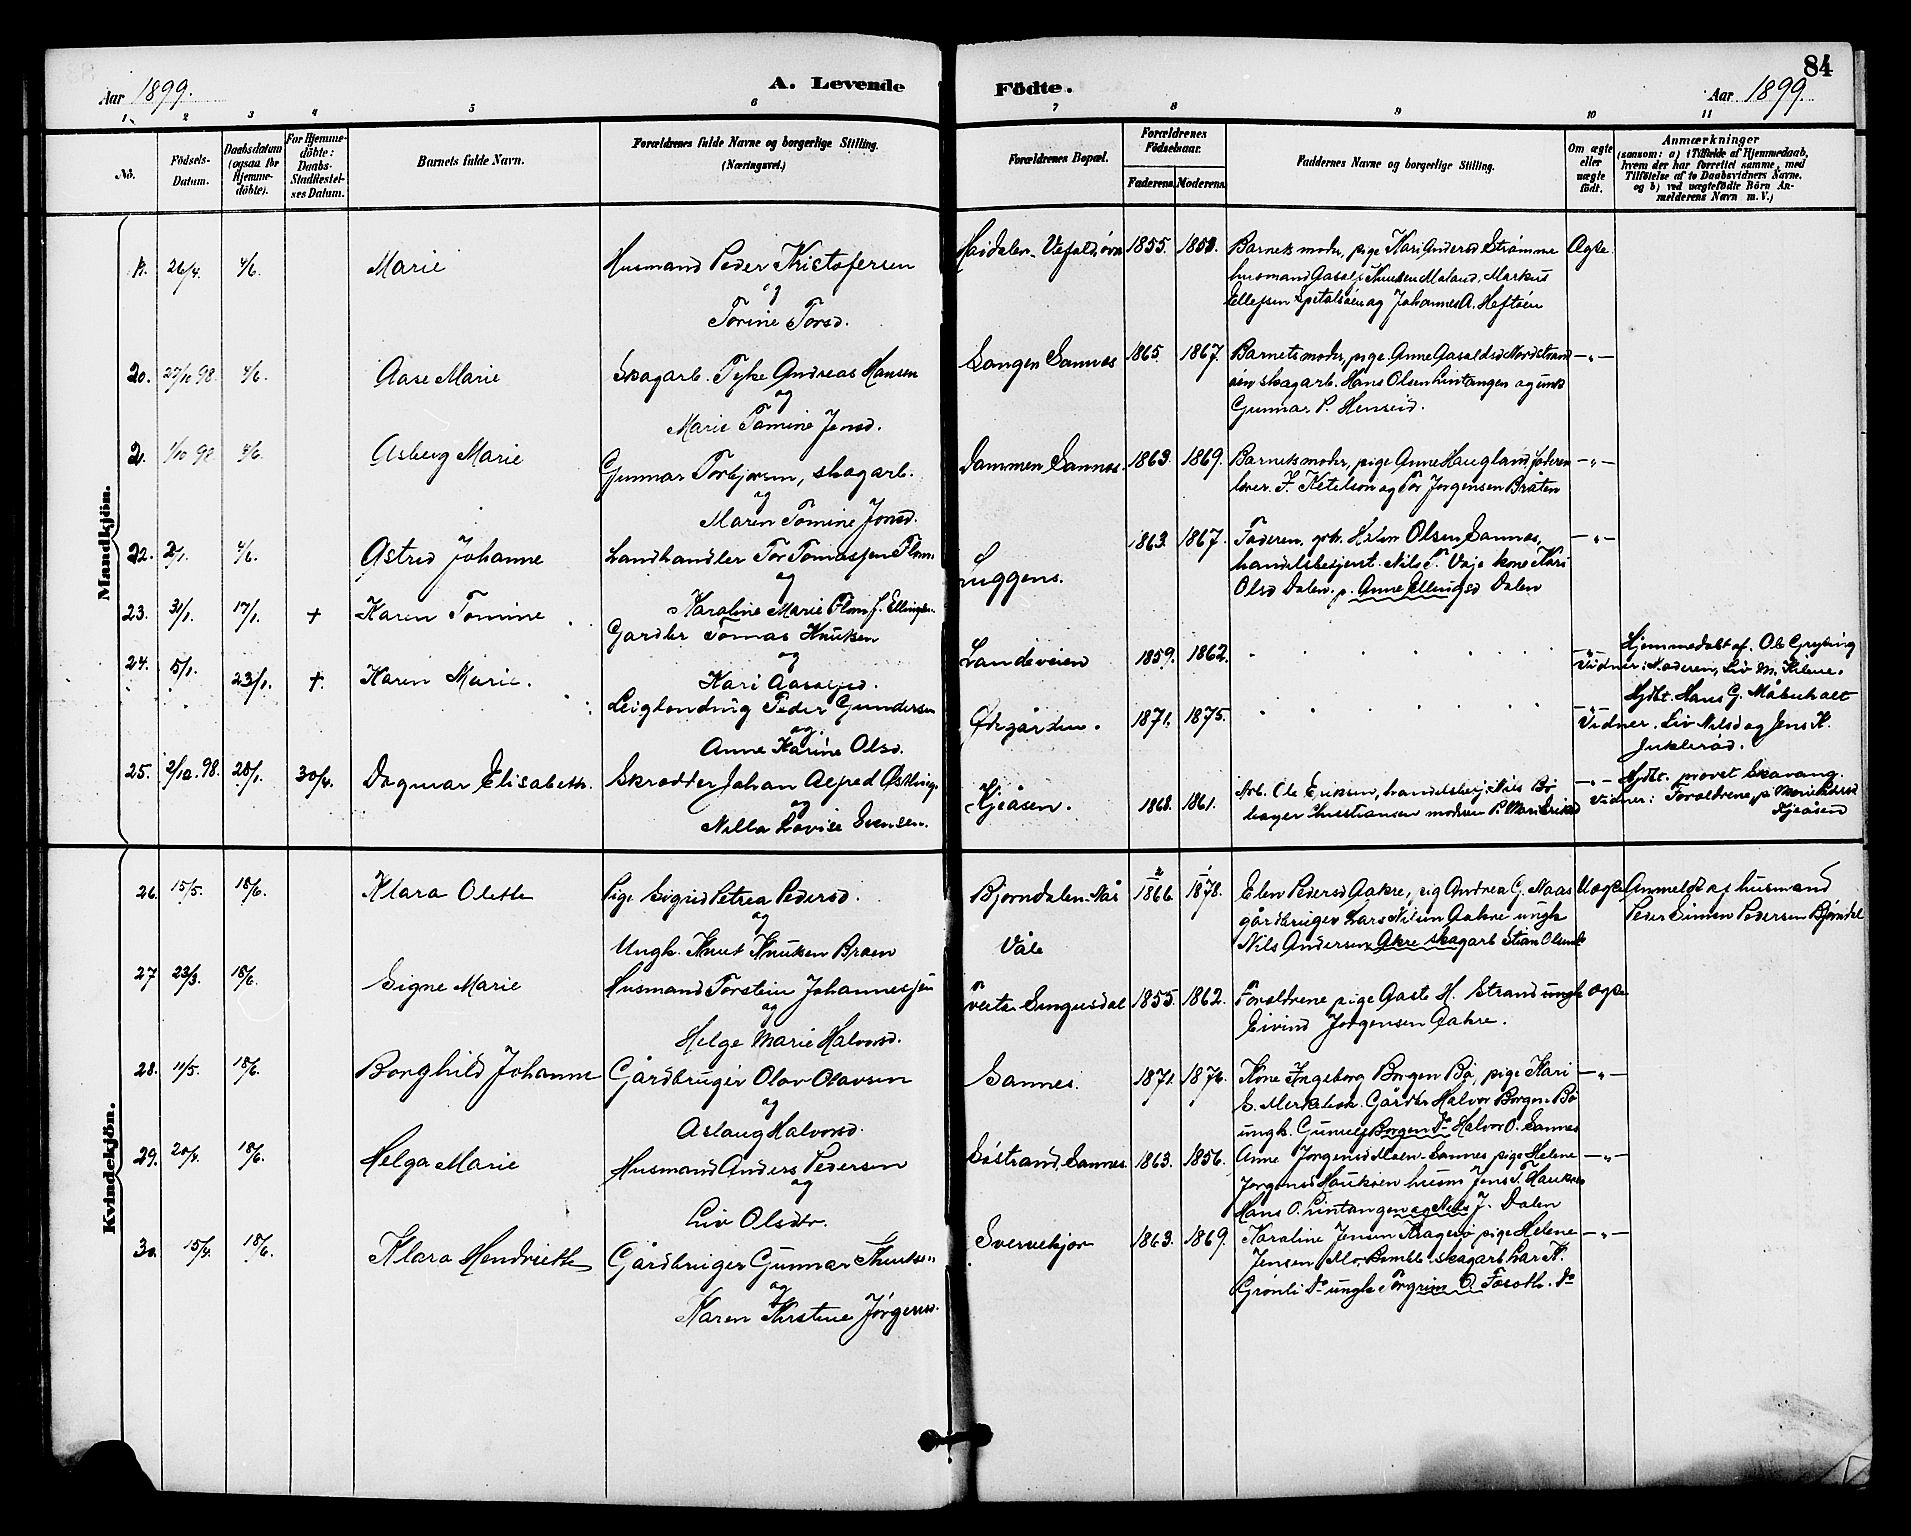 Aar 1899.
A. Levende
Födte.
84
Aar 1899.
1 2 3 4 5 6 7 8 9 10 11
No.
Födsels-Datum.
Daabsdatum (ogsaa for Hjemme-döbte).
For Hjemme-döbte: Daabs-Stadfæstel-ses Datum.
Barnets fulde Navn.
Forældrenes fulde Navne og borgerlige Stilling. (Næringsvei.)
Forældrenes Bopæl.
Forældrenes Födselsaar.
Faderens. Moderens.
Faddernes Navne og borgerlige Stilling.
Om ægte eller uægte födt.
Anmærkninger
(saasom: a) i Tilfælde af Hjemmedaab, hvem der har forrettet samme, med Tilföielse af to Daabsvidners Navne, og b) ved uægtefödte Börn An-melderens Navn m. V.)
Mandkjön.
26/4. 4/6. Marie
Husmand Peder Kristofersen
og
Torine Torsd.
1855. 1858.
Barnets moder, pige Kari Andersd Strømme
husmand Aasulf Knutsen Moland, Markus
Ellefsen Spitalsöen og Johannes A. Heftöen
Ægte.
20. 27/10 98. 4/6. Aase Marie
Skogarb. Tyke Andreas Hansen
og
Marie Tomine Jonsd.
Sangen Sannes 1865. 1867.
Barnets moder, pige Anne Aasoldsd Nordstrand
öen skogarb. Hans Olsen Lintangen og unk
Gunnar P. Henseid.
2. 1/10 98. 4/6. Asberg Marie
Gunnar Torbjorsen, skogarb.
og
Maren Tomine Jonsd.
Dammen Sannes. 1863. 1869.
Barnets moder, pige Anne Haugland faderen
lærer. F. Ketelson og Tor Jorgensen Bråten
22. 2/1. 4/6. Astrid Johanne
Landhandler Tor Tomassen Flom
og
Karoline Marie Flom f. Ellingsd.
Luggens. 1863. 1867.
Faderen, grb. Halvor Olsen Sannes,
handelsbetjent. Nils T. Vaje kone Kari
Olsd Dalen. p. Anne Ellingsd Dalen
23. 31/1. 17/1. + Karen Tomine
Gardbr Tomas Knutsen
og
Kari Aasolfsd.
Landeveien 1859. 1862.
Hjemmedöbt af. Ole Gryting
Vidner: Moderen, Liv M. Kilene.
24. 5/1. 23/1. +. Karen Marie.
Leiglending Peder Gundersen
og
Anne Karine Olsd.
Ødegården. 1871. 1875.
Hjdbt. Hans G. Måbuholt
Vidner. Liv Nilsd og Jens K.
Juklerød.
25. 2/12. 98. 28/1. 30/4. Dagmar Elisabeth.
Skrædder Johan Alfred Østling
og
Nilla Lovise Svensen.
Kjeåsen. 1868. 1861.
Arb. Ole Eriksen, handelsbetj. Nils Bö
bager Kristiansen modren
Hjdbt. provst Skavang.
Vidner: Forældrene, p Marie Pedersd
Kjeåsen
Kvindekjön.
26. 15/5. 18/6. Klara Olette
Pige Sigrid Petrea Pedersd.
og
Ungk. Knut Knutsen Bråen
Bjorndalen. Nås
Våle
2 1
1866. 1878.
Elen Pedersd Aakre, pig Andrea G. Naas
gårdbruger Lars Nilsen Aakre ungk
Nils Andersen Akre skogarb Stian Olsen
Uægte
Anmeldt af husmand
Peder Simen Pedersen Bjørndal
27 23/3. 18/6. Signe Marie
Husmand Torstein Johannesjen
og
Helge Marie Halvorsd.
1855. 1862.
Forældrene pige Aaste H. Strand ungk
Eivind Jorgensen Aakre.
ægte
28. 11/5. 18/6. Borghild Johanne
Gårdbruger Olav Olavsen
og
Aslaug Halvorsd.
Sannes. 1871. 1876.
Kone Ingeborg Borgen Bö, pige Kari
Gårdbr Halvor Borgen Bö
ungk. Gunulf Borgen Do Halvor O. Sannes
29. 20/4. 18/6. Helga Marie
Husmand Anders Pedersen
og
Liv Olsdtr.
Söstrand, Sannes. 1863. 1856.
Anne Jorgensd Moen Sannes pige Helene
Jorgensd Hauksöen husm Jens T. Hauksöen
Hans O. Lintangen og Nils J. Dalen
30. 15/4. 18/6. Klara Hendriette
Gårdbruger Gunnar Knutsen
og
Karen Kirstine Jörgensd.
Svenekjær 1863. 1869.
Karoline Jensen Kragerö pige Helene
Jensen Mo, Bamble skogarb Lar K.
Grönli Do ungk Torgrim O. Fosseth. Do